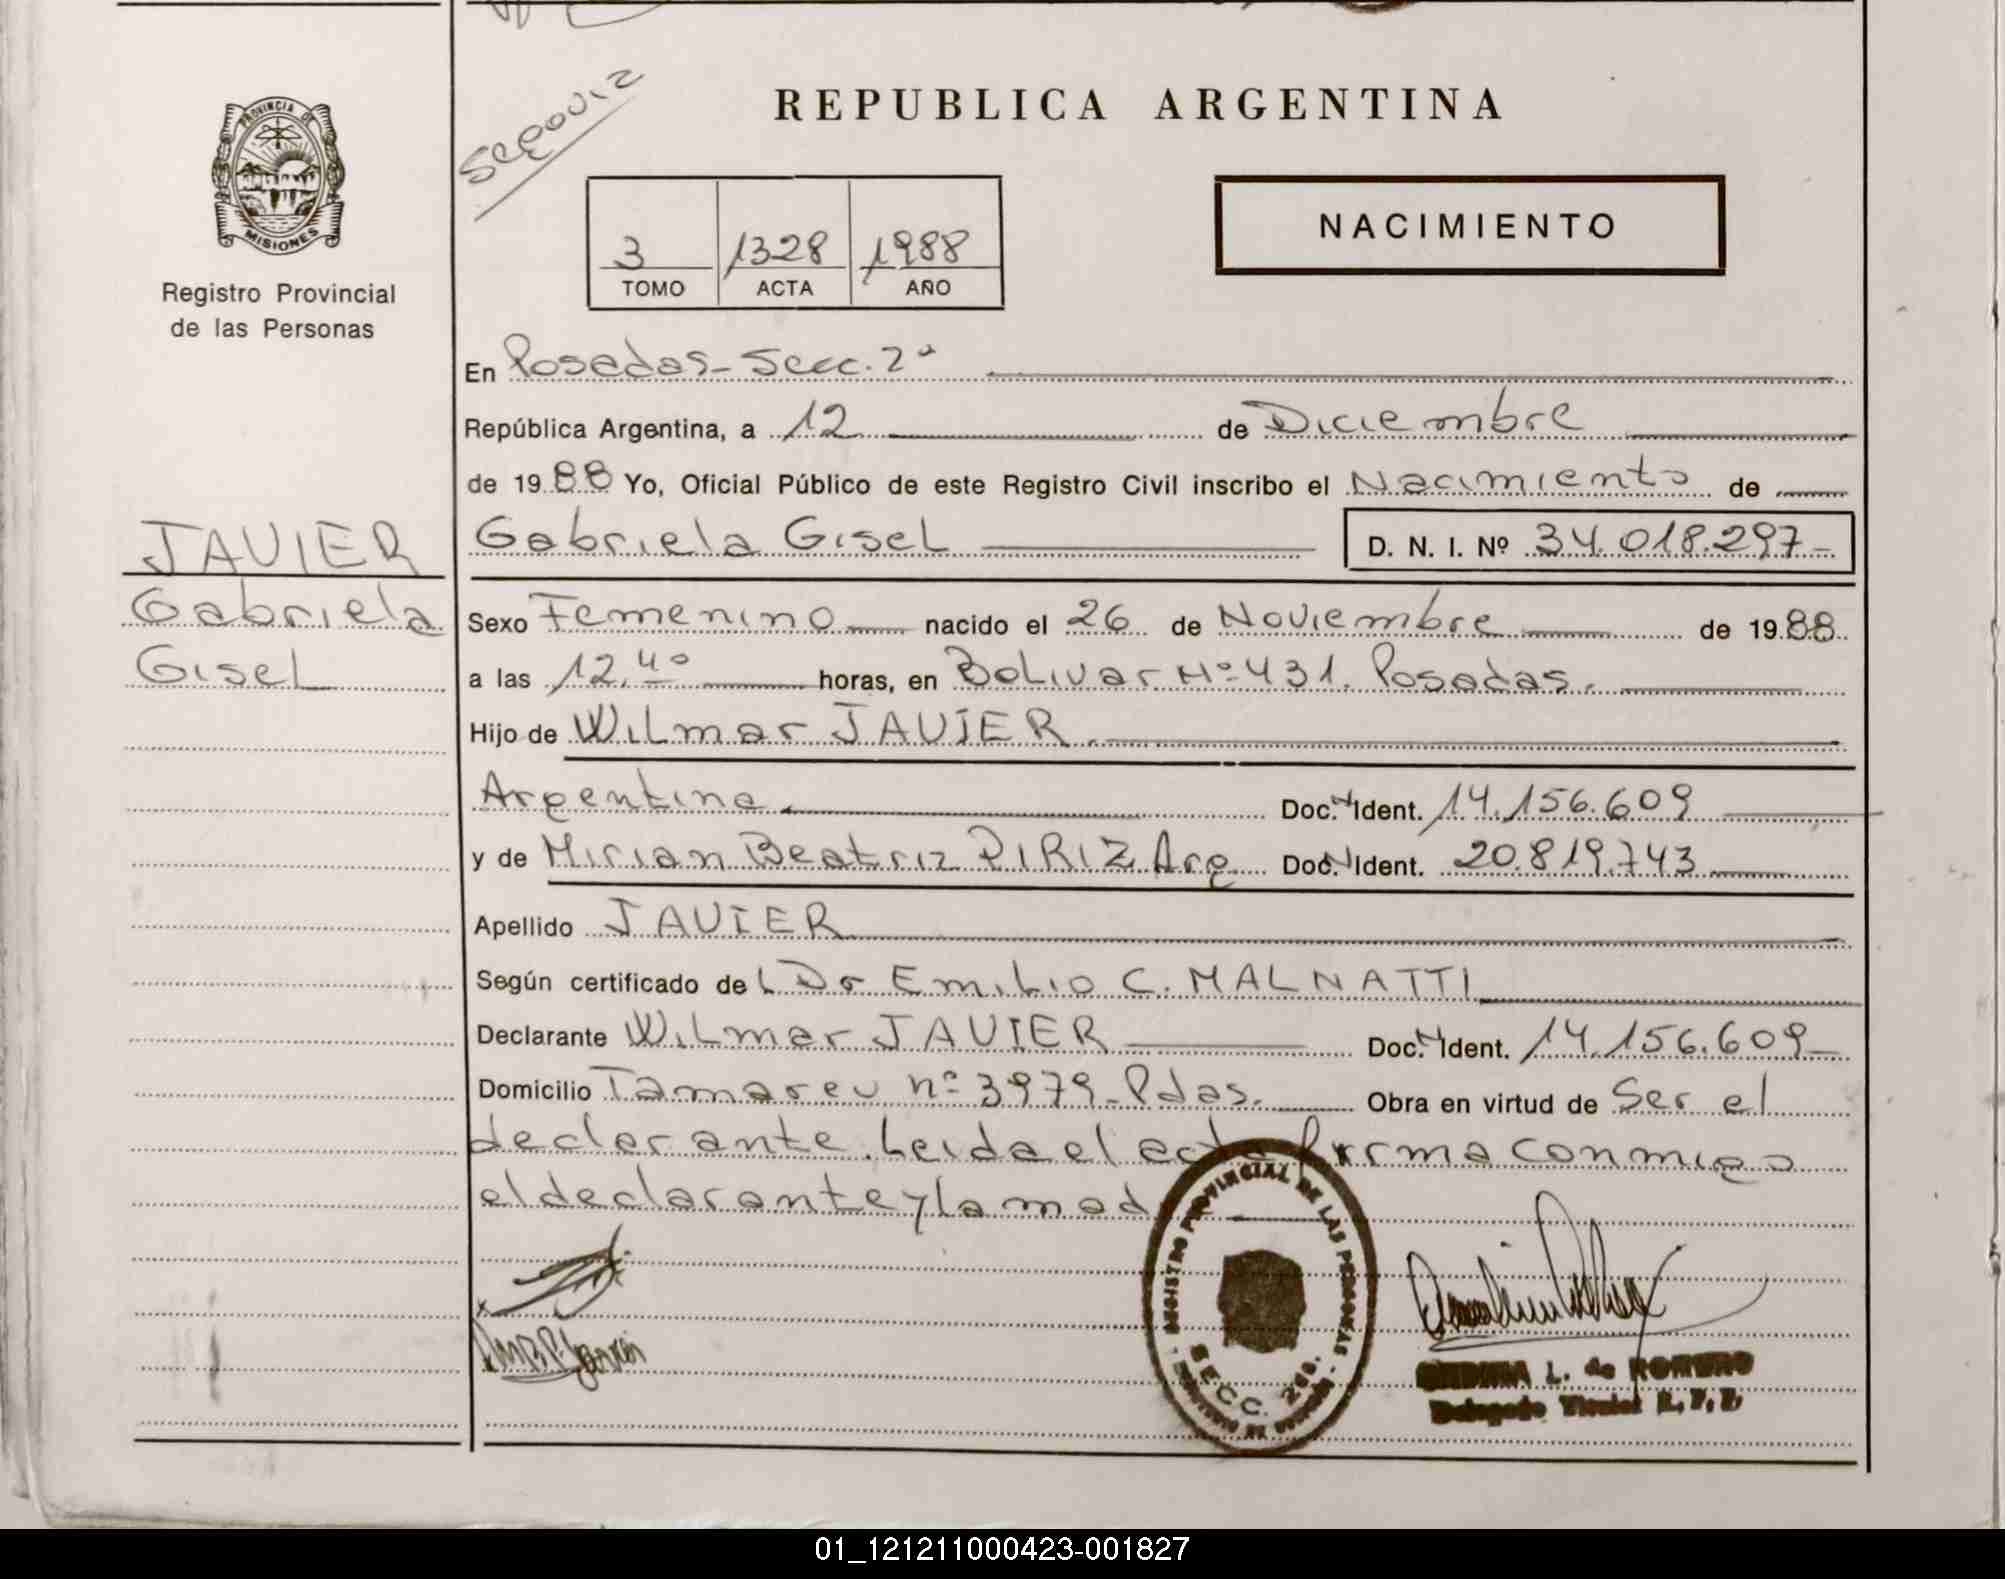 PROVINCIA DE
MISIONES
Registro Provincial
de las Personas
JAVIER
Gabriela
Gisel
REPUBLICA ARGENTINA
3 1328 1988
TOMO ACTA AÑO
NACIMIENTO
En Posadas-Secc. 2ª
República Argentina, a 12 de Diciembre
de 1988 Yo, Oficial Público de este Registro Civil inscribo el Nacimiento de
Gabriela Gisel D. N. I. Nº 34.018.297-
Sexo Femenino nacido el 26 de Noviembre de 1988
a las 12,40 horas, en Bolivar Nº 431. Posadas.
Hijo de Wilmar JAVIER.
Argentina Doc. N Ident. 14.156.609
y de Mirian Beatriz PIRIZ Arg Doc. N Ident. 20.819.743
Apellido JAVIER
Según certificado del Dr Emilio C. MALNATTI
Declarante Wilmar JAVIER Doc. N Ident. 14.156.609-
Domicilio Tamareu nº 3979-Pdas. Obra en virtud de Ser el
declarante. Leida el acta firma conmigo
el declarante y la mad
REGISTRO PROVINCIAL DE LAS PERSONAS
SECC. 2da.
L. de ROMERO
01_121211000423-001827